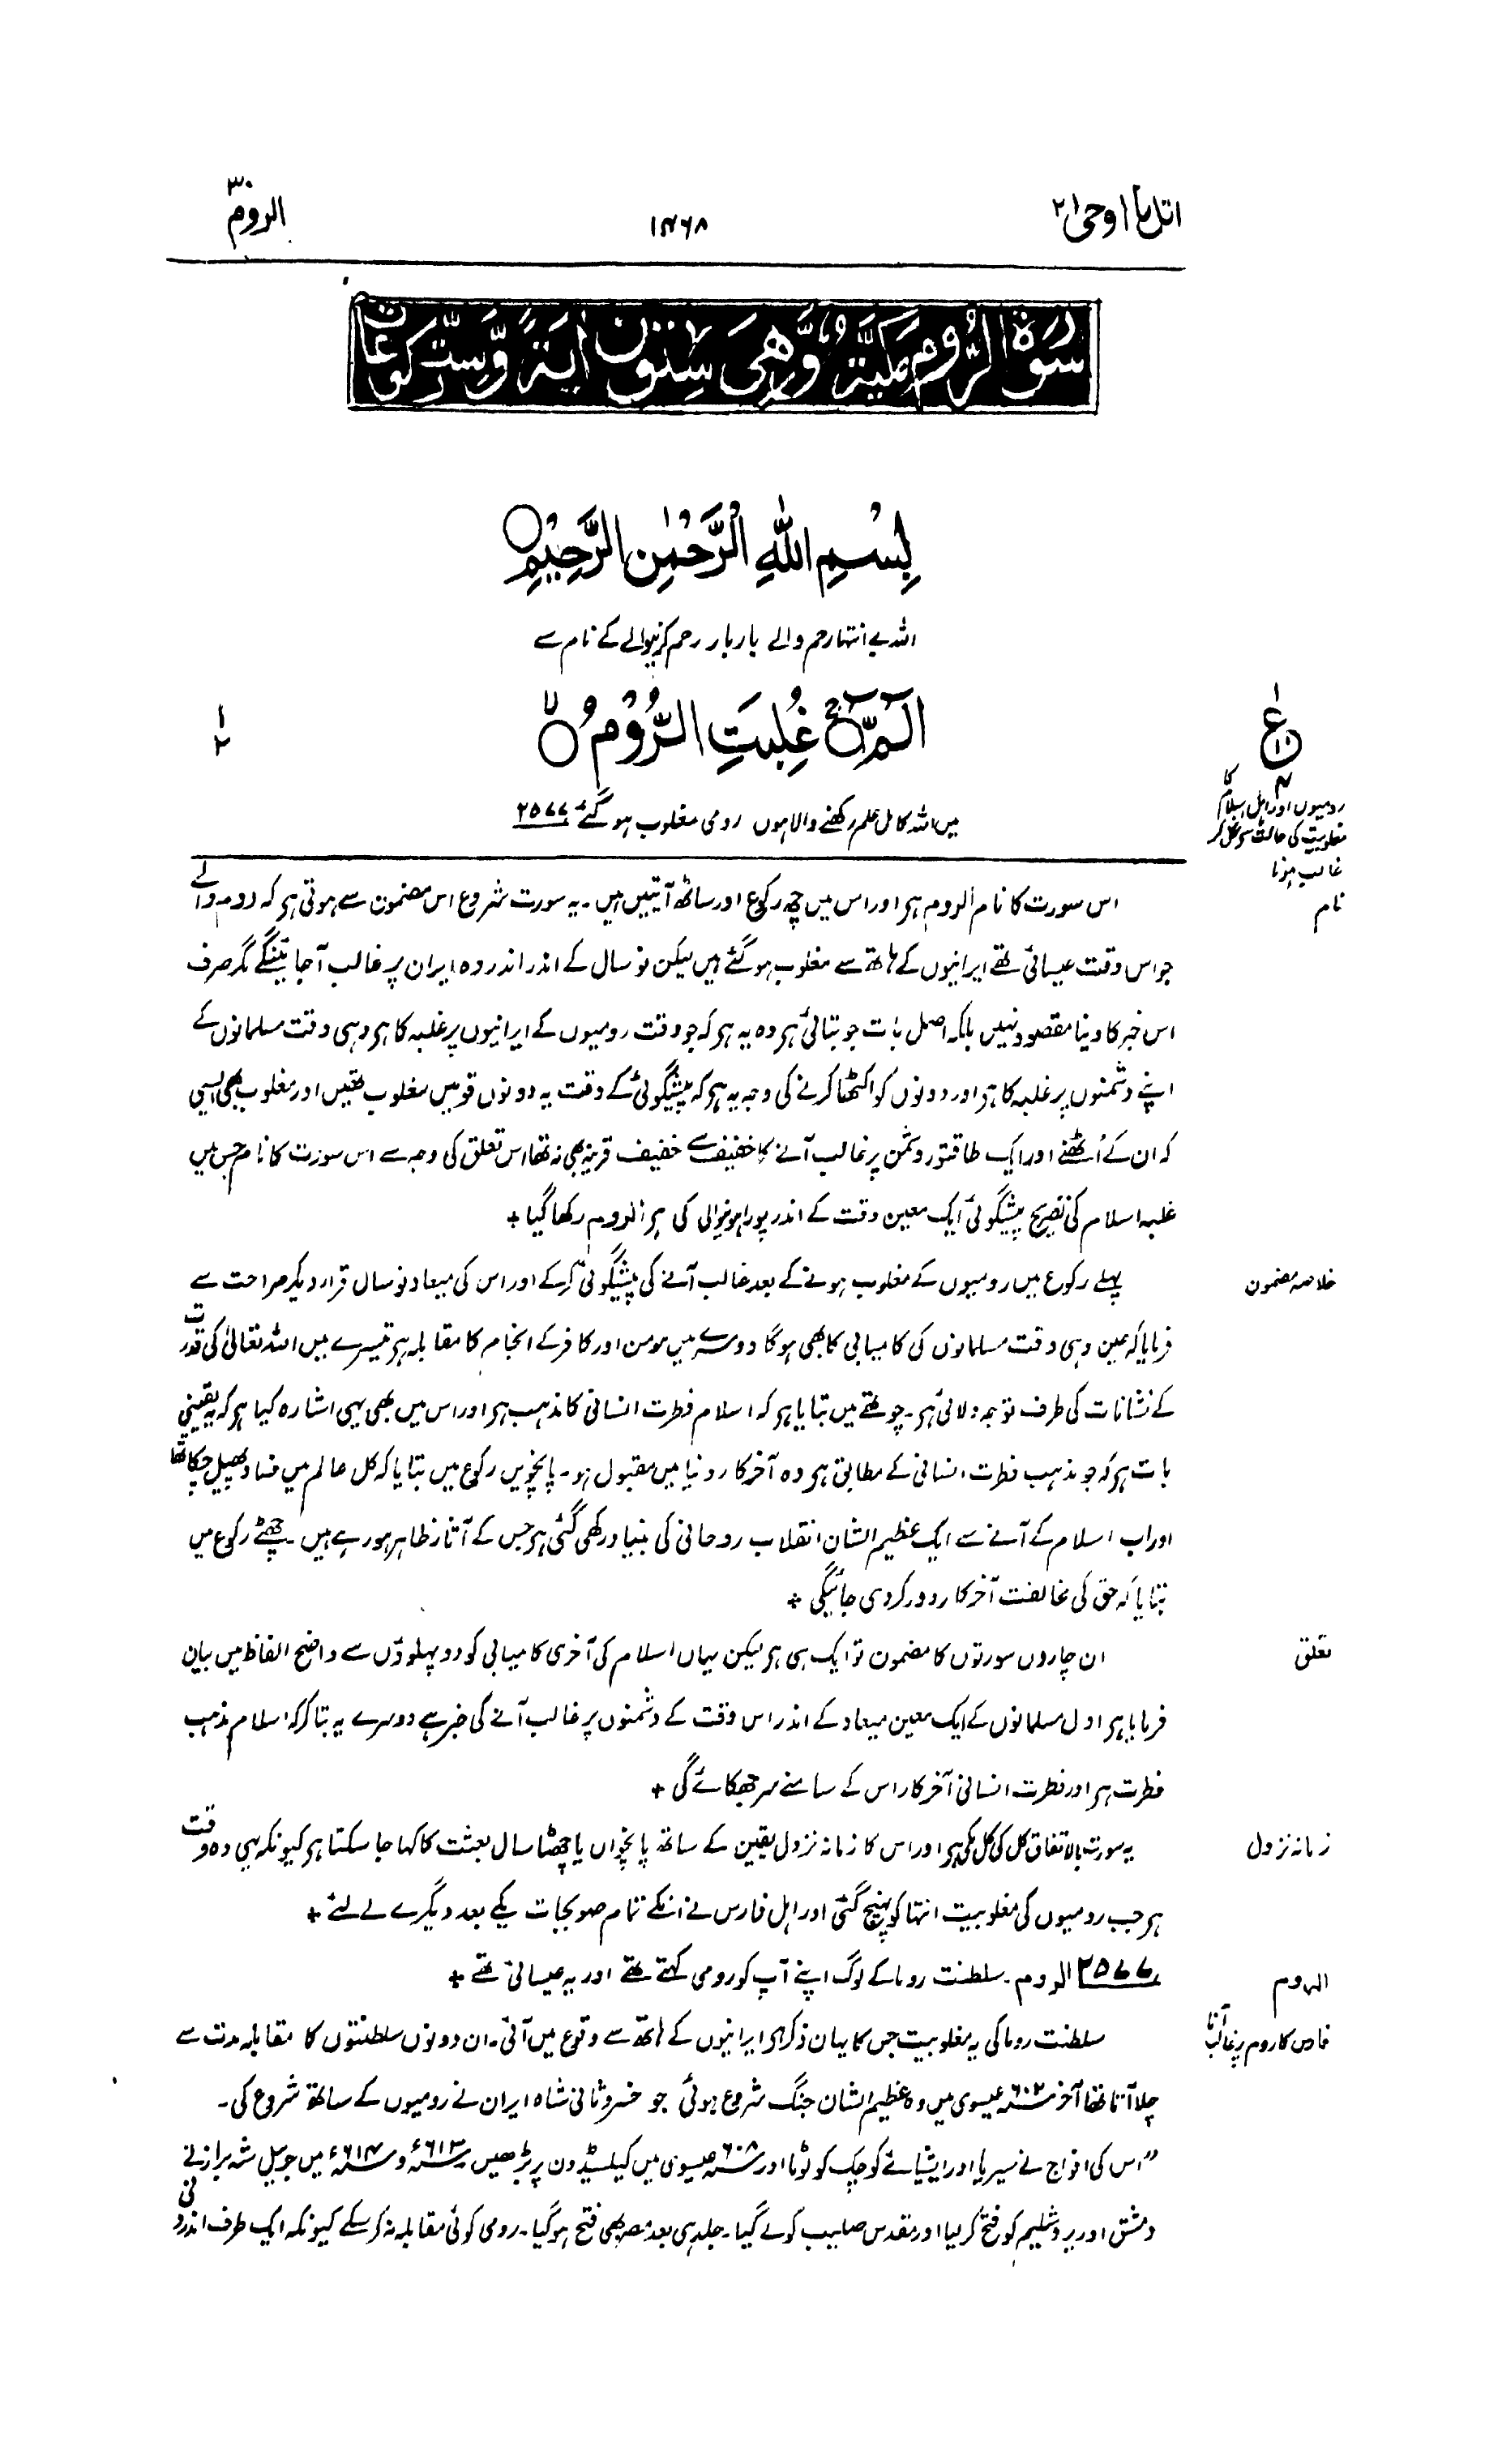 اتل ما اوحی ۲۱
۱۴۶۸
الروم ۳۰
سُوْرَةُ الرُّوْمِ مَكِّيَّةٌ وَّهِيَ سِتُّوْنَ اٰيَةً وَّسِتُّ رُكُوْعَاتٍ
بِسْمِ اللّٰهِ الرَّحْمٰنِ الرَّحِيْمِ
اللہ بے انتہا رحم والے بار بار رحم کرنیوالے کے نام سے
الٓمّٓ ۚ غُلِبَتِ الرُّوْمُ ۙ
۱
۲
میں اللہ کامل علم رکھنے والا ہوں رومی مغلوب ہو گئے ۲۵۷۷
ع
رومیوں اور اہل اسلام کا
مغلوبیت کی حالت سے نکل کر
غالب ہونا
نام
اس سورت کا نام الروم ہر اور اس میں چھ رکوع اور ساٹھ آیتیں ہیں۔ یہ سورت شروع اس مضمون سے ہوتی ہر کہ روم والے
جو اس وقت عیسائی تھے ایرانیوں کے ہاتھ سے مغلوب ہو گئے ہیں لیکن نو سال کے اندر اندر وہ ایران پر غالب آجائینگے مگر صرف
اس خبر کا دینا مقصود نہیں بلکہ اصل بات جو بتائی ہر وہ یہ ہر کہ جو وقت رومیوں کے ایرانیوں پر غلبہ کا ہر وہی وقت مسلمانوں کے
اپنے دشمنوں پر غلبہ کا ہر اور دونوں کو اکٹھا کرنے کی وجہ یہ ہر کہ پیشگوئی کے وقت یہ دونوں قومیں مغلوب تھیں اور مغلوب بھی ایسی
کہ ان کے اُٹھنے اور ایک طاقتور دشمن پر غالب آنے کا خفیف سے خفیف قرینہ بھی نہ تھا اس تعلق کی وجہ سے اس سورت کا نام جس میں
غلبہ اسلام کی تصریح پیشگوئی ایک معین وقت کے اندر پورا ہونیوالی کی ہر الروم رکھا گیا +
خلاصہ مضمون
پہلے رکوع میں رومیوں کے مغلوب ہونے کے بعد غالب آنے کی پیشگوئی کرکے اور اس کی میعاد نو سال قرار دیکر صراحت سے
فرمایا کہ عین وہی وقت مسلمانوں کی کامیابی کا بھی ہوگا دوسرے میں مومن اور کافر کے انجام کا مقابلہ ہر تیسرے میں اللہ تعالیٰ کی قدرت
کے نشانات کی طرف توجہ دلائی ہر۔ چوتھے میں بتایا ہر کہ اسلام فطرت انسانی کا مذہب ہر اور اس میں بھی یہی اشارہ کیا ہر کہ یہ یقینی
بات ہر کہ جو مذہب فطرت انسانی کے مطابق ہر وہ آخر کار دنیا میں مقبول ہو۔ پانچویں رکوع میں بتایا کہ کل عالم میں فساد پھیل چکا تھا
اور اب اسلام کے آنے سے ایک عظیم الشان انقلاب روحانی کی بنیاد رکھی گئی ہر جس کے آثار ظاہر ہو رہے ہیں۔ چھٹے رکوع میں
بتایا کہ حق کی مخالفت آخر کار دور کردی جائیگی +
تعلق
ان چاروں سورتوں کا مضمون تو ایک ہی ہر لیکن یہاں اسلام کی آخری کامیابی کو دو پہلوؤں سے واضح الفاظ میں بیان
فرمایا ہر اول مسلمانوں کے ایک معین میعاد کے اندر اس وقت کے دشمنوں پر غالب آنے کی خبر ہے دوسرے یہ بتا کر کہ اسلام مذہب
فطرت ہر اور فطرت انسانی آخر کار اس کے سامنے سر جھکائے گی +
زمانہ نزول
یہ سورت بالاتفاق کل کی کل مکی ہر اور اس کا زمانہ نزول یقین کے ساتھ پانچواں یا چھٹا سال بعثت کا کہا جا سکتا ہر کیونکہ یہی وہ وقت
ہر جب رومیوں کی مغلوبیت انتہا کو پہنچ گئی اور اہل فارس نے انکے تمام صوبجات یکے بعد دیگرے لے لئے +
الروم
۲۵۷۷ الروم۔ سلطنت روما کے لوگ اپنے آپ کو رومی کہتے تھے اور یہ عیسائی تھے +
فارس کا روم پر غالب آنا
سلطنت روما کی یہ مغلوبیت جس کا یہاں ذکر ہر ایرانیوں کے ہاتھ سے وقوع میں آئی۔ ان دونوں سلطنتوں کا مقابلہ مدت سے
چلا آتا تھا آخر ۶۰۲ عیسوی میں وہ عظیم الشان جنگ شروع ہوئی جو خسرو ثانی شاہ ایران نے رومیوں کے ساتھ شروع کی۔
”اس کی افواج نے سیریا اور ایشیائے کوچک کو لوٹا اور ۶۰۸ عیسوی میں کیلسیڈون پر بڑھیں ۶۱۳ء و ۶۱۴ء میں جرنیل شہ براز نے
دمشق اور یروشلیم کو فتح کر لیا اور مقدس صلیب کو لے گیا۔ جلد ہی بعد مصر بھی فتح ہو گیا۔ رومی کوئی مقابلہ نہ کر سکے کیونکہ ایک طرف اندرونی